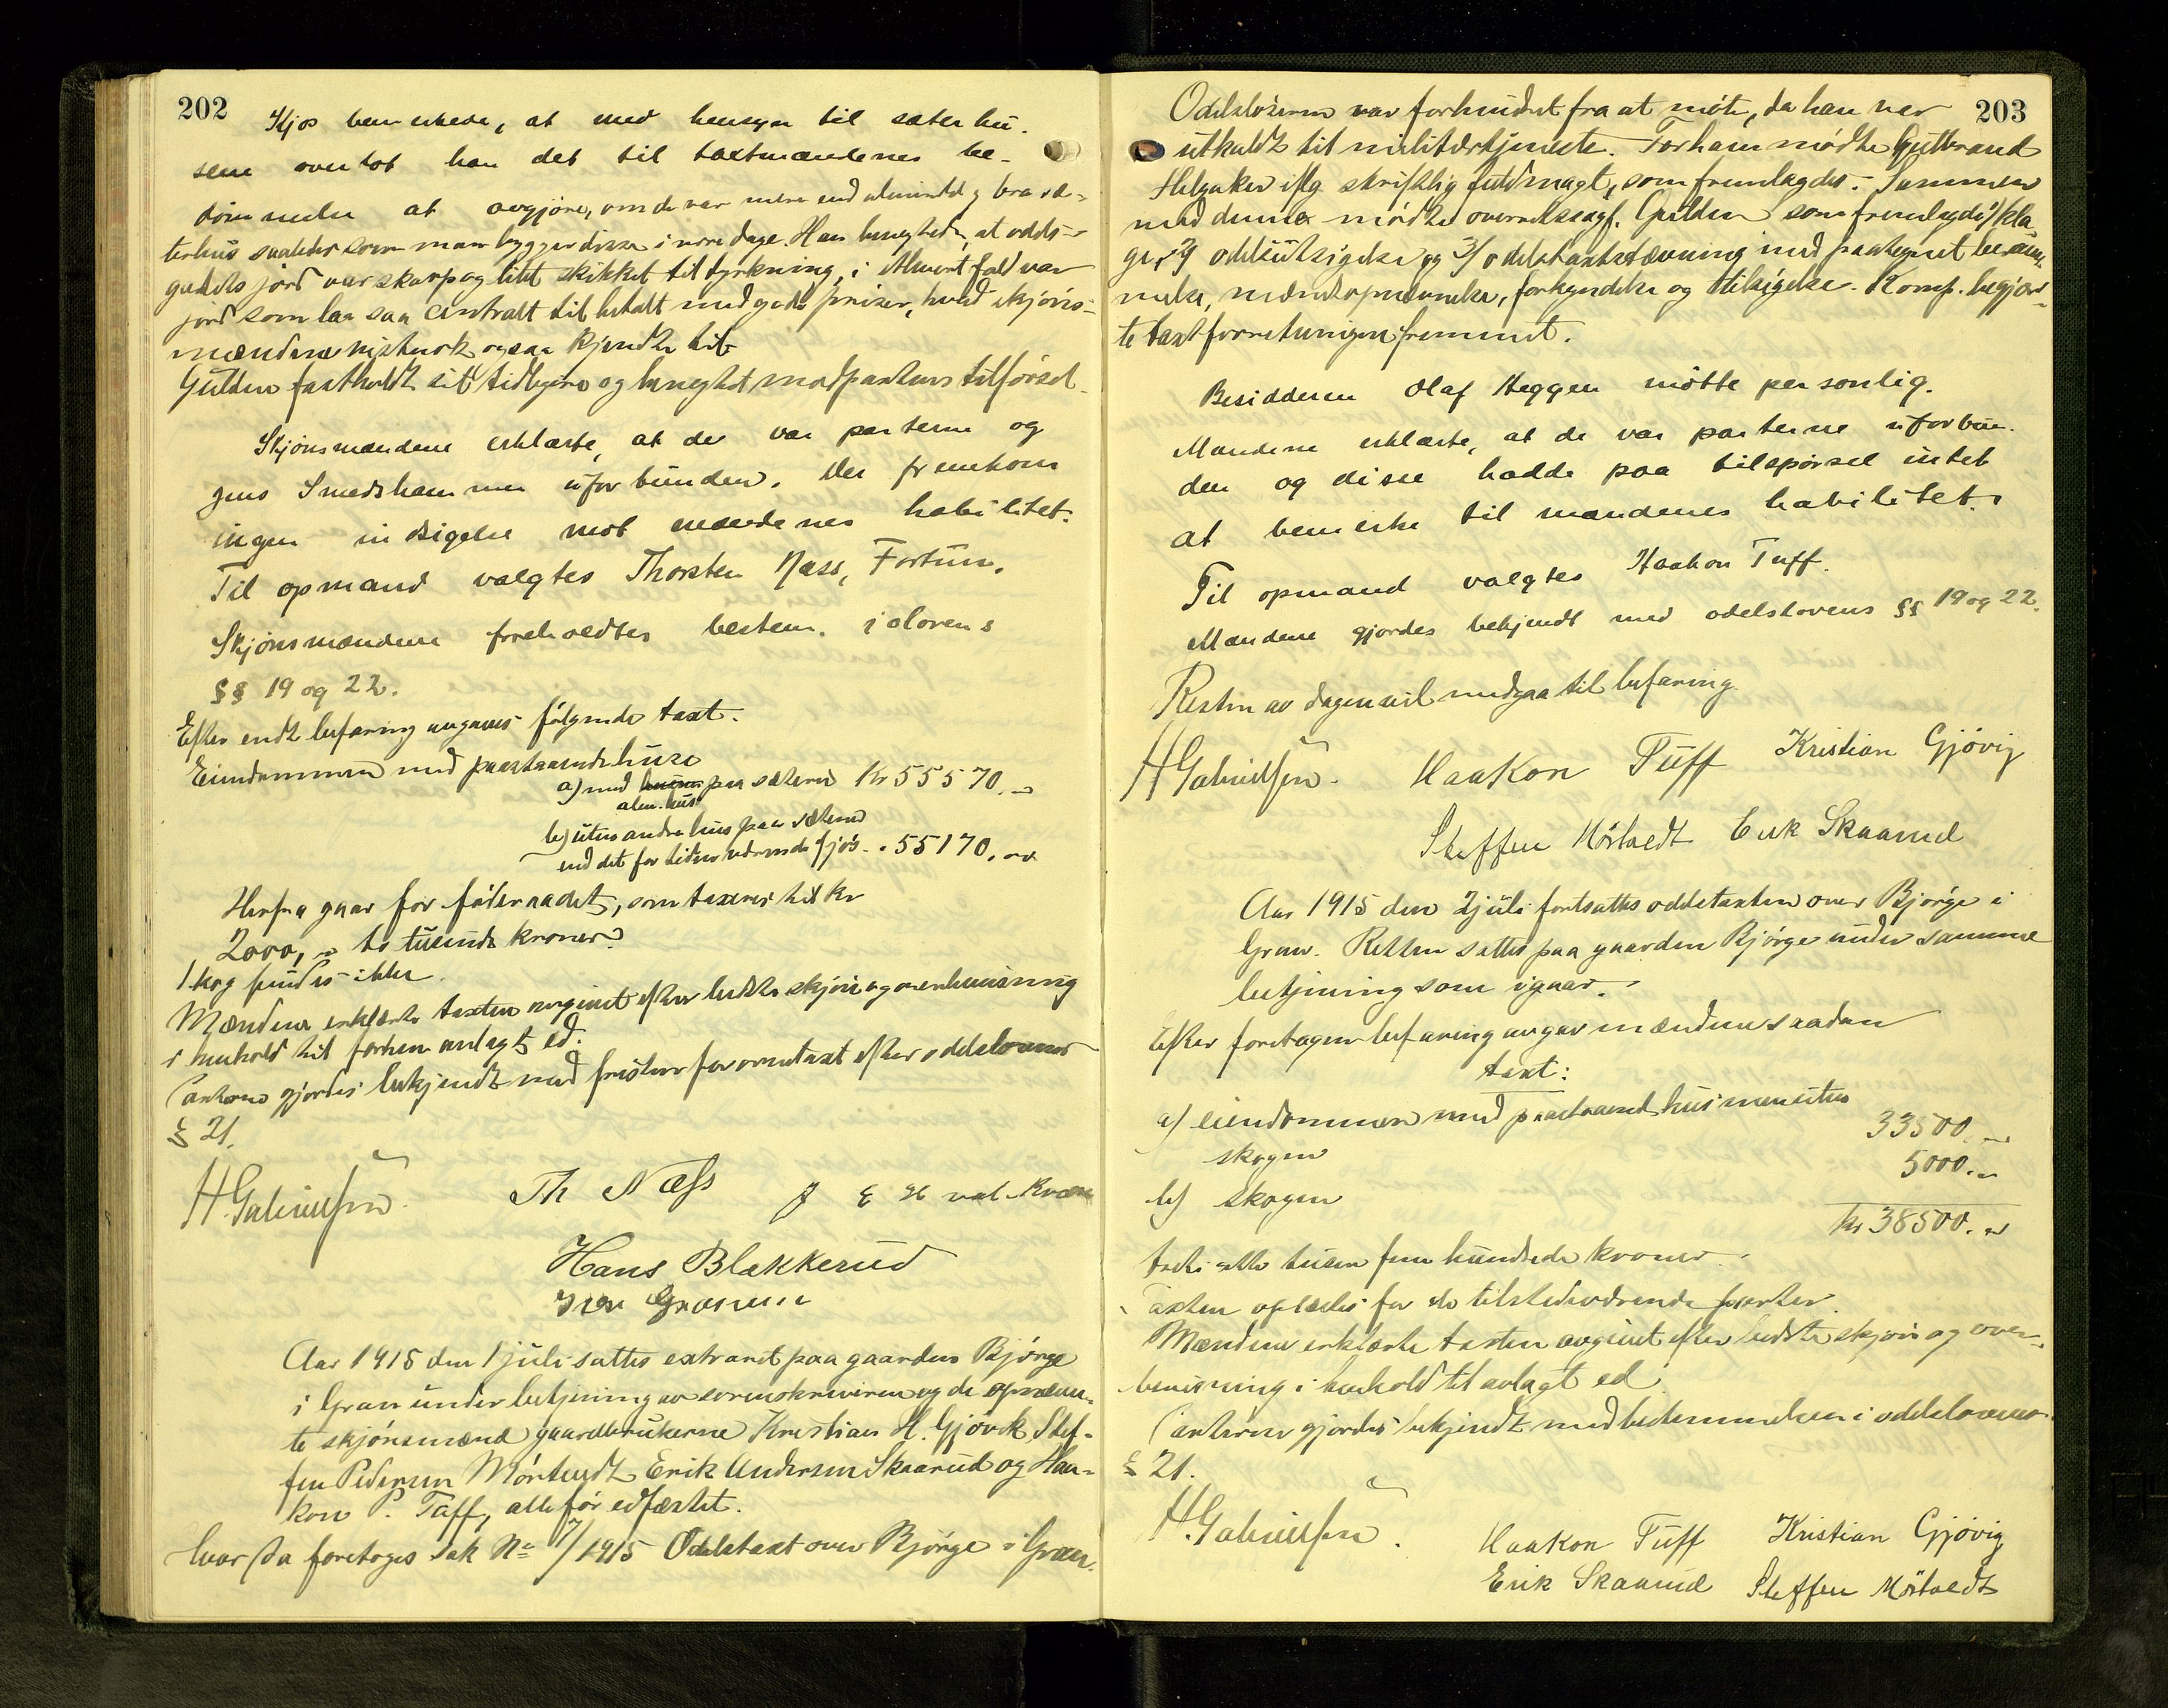 202
Kjos bemerkede, at med hensyn til sæterhu-
sene overlot han det til taxtmændenes be-
dømmelse at avgjøre, om de var mere end almindelig bra sæ-
terhus saaledes som man bygger disse i vore dage. Han benegtede, at odels-
godsets jord var skarp og litet skikket til dyrkning, i ethvert fald var
jord som laa saa centralt til betalt med gode priser, hvad skjøns-
mændene nok ogsaa kjendte til.
Gulden fastholdt sit tidligere og benegtet motpartens tilførsel.
Skjønsmændene erklærte, at de var parterne og
gens Smedshammer uforbunden. Der fremkom
ingen indsigelse mot mændenes habilitet.
Til opmand valgtes Thorsten Næss, Fortun.
Skjønsmændene foreholdtes bestem. i olovens
§§ 19 og 22.
Efter endt befaring avgaves følgende taxt.
Eiendommen med paastaaende huse
a) med husene paa sæteren Kr 55570.-
alm. hus
b) uten andre hus paa sæteren
end det for tiden værende fjøs - " 55170.-
Herfra gaar for føderaadet, som taxeres til kr
2000,- to tusinde kroner.
Skog findes ikke.
Mændene erklærte taxten avgivet efter bedste skjøn og overbevisning
i henhold til forhen avlagt ed.
Parterne gjordes bekjendt med fristen for overtaxt efter odelslovens
§ 21.
H. Gabrielsen. Th Næss J E H
Hans Blekkerud
Iver Granum
Aar 1915 den 1 juli sattes extraret paa gaarden Bjørge
i Gran under betjening av sorenskriveren og de opnævn-
te skjønsmænd gaardbrukerne Kristian H. Gjøvik, Stef-
fen Pedersen Mørtvedt, Erik Andersen Skaarud og Haa-
kon P. Tuff, alle før edfæstet.
Hvor da foretoges Sak No 7/1915 Odelstaxt over Bjørge i Gran.
203
Odelsløseren var forhindret fra at møte, da han var
utkaldt til militærtjeneste. For ham mødte Gulbrand
Helgaker iflg. skriftlig fuldmagt, som fremlagdes. Sammen
med denne mødte overretssagf. Gulden som fremlagde 1/ kla-
ge, 2/ odelsutsigelse og 3/ odelstaxtstævning med paategnet beram-
melse, mændsopnævnelse, forkyndelse og tilsigelse. Komp. begjær-
te taxtforretningen fremmet.
Besidderen Olaf Heggen møtte personlig.
Mændene erklærte, at de var parterne uforbun-
den og disse hadde paa tilspørsel intet
at bemerke til mændenes habilitet.
Til opmand valgtes Haakon Tuff.
Mændene gjordes bekjendt med odelslovens §§ 19 og 22.
Resten av dagen vil medgaa til befaring
H Gabrielsen. Haakon Tuff Kristian Gjøvig
Steffen Mörtvedt Erik Skaarud
Aar 1915 den 2 juli fortsattes oddetaxten over Bjørge i
Gran. Retten sattes paa gaarden Bjørge under samme
betjening som igaar.
Efter foretagen befaring avgav mændene saadan
taxt:
a) eiendommen med paastaaende hus men uten
skogen 33500.-
b) skogen 5000.-
Kr 38500.-
treti otte tusen fem hundrede kroner.
Taxten oplæstes for de tilstedeværende parter.
Mændene erklærte taxten avgivet efter bedste skjøn og over-
bevisning i henhold til avlagt ed
Parterne gjordes bekjendt med bestemmelsen i oddelslovens
§ 21.
H. Gabrielsen. Haakon Tuff Kristian Gjøvig
Erik Skaarud Steffen Mörtvedt